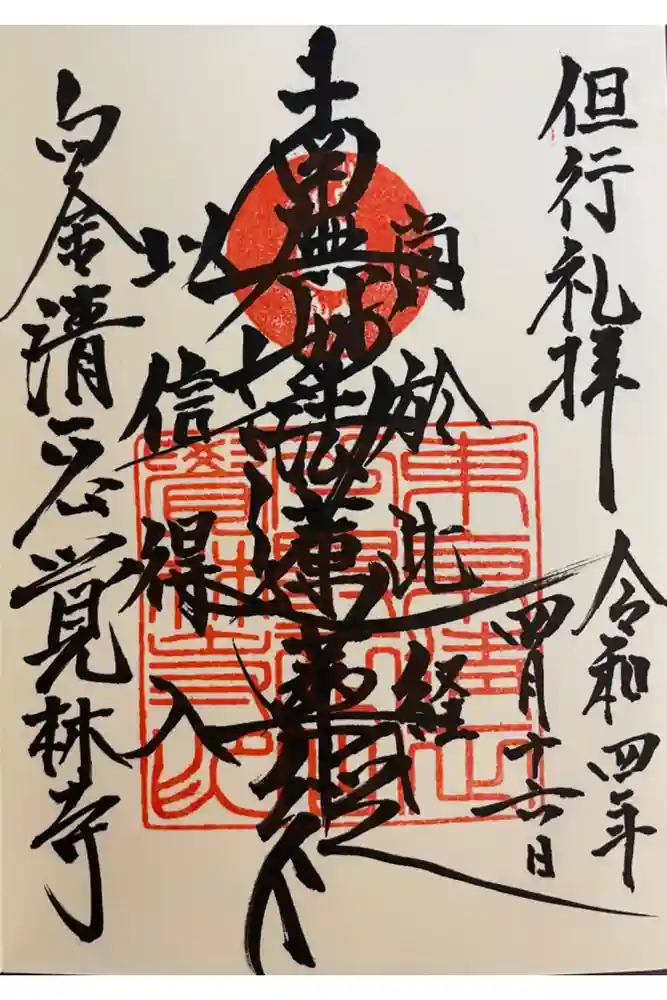 但行礼拝
令和四年
四月十六日
尚於此経
南無妙法蓮華経
以信得入
白金清正公覚林寺